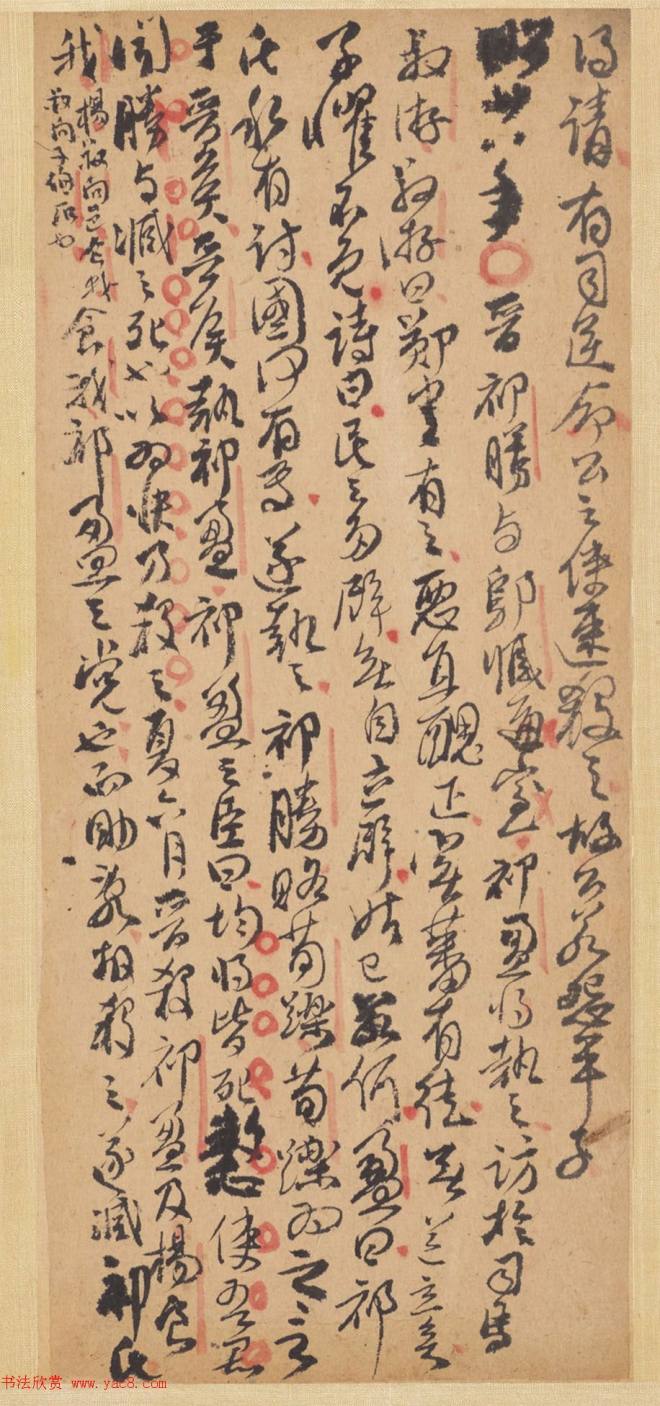 得請有司逆命公之使速殺之故公若怨平子
昭廿八年晉祁勝与鄔臧通室祁盈將執之訪於司馬
叔游叔游曰鄭書有之惡直醜正實蕃有徒無道立矣
子懼不免詩曰民之多辟無自立辟姑已若何盈曰祁
氏私有討國何有焉遂執之祁勝賂荀躒荀躒為之言
于晉矦晉矦執祁盈祁盈之臣曰均將皆死憖使吾君
聞勝与臧之死也以為快乃殺之夏六月晉殺祁盈及楊食
我
楊叔向邑食我
叔向子伯石也
食我祁盈之党也而助亂故殺之遂滅祁氏
书法欣赏 www.yac8.com